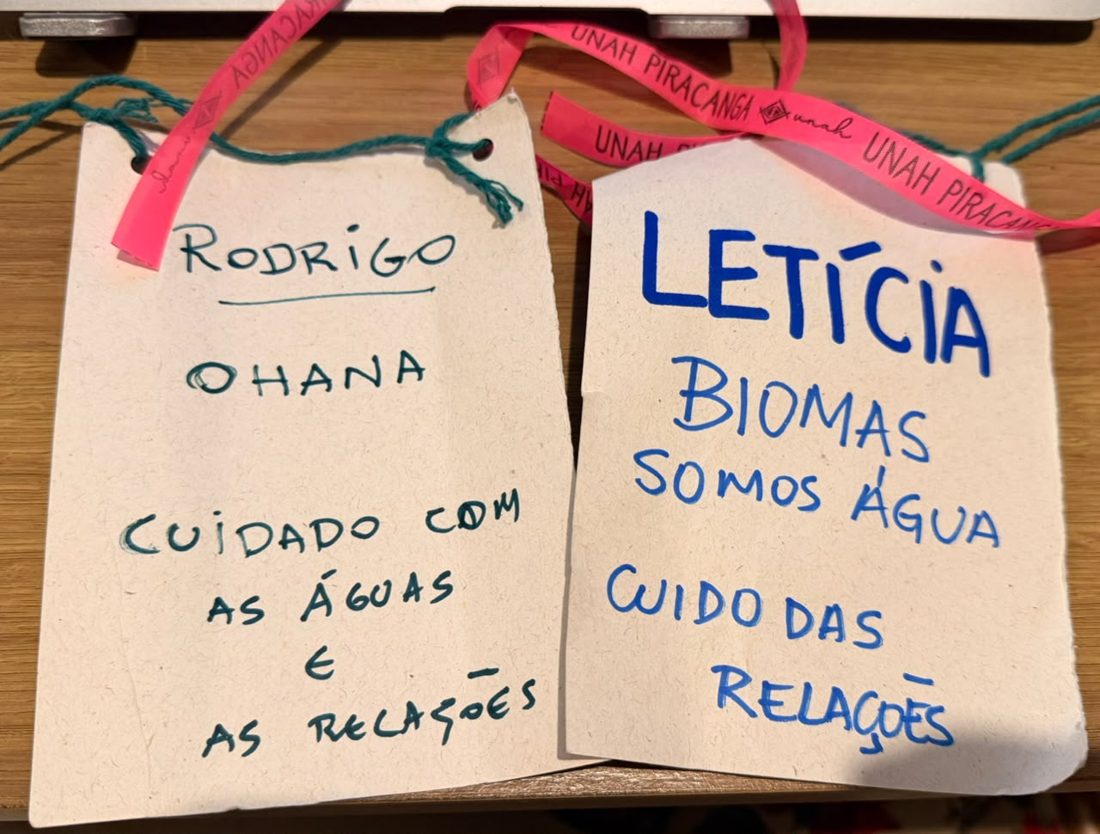 RODRIGO
OHANA
CUIDADO COM
AS ÁGUAS
E
AS RELAÇÕES
LETÍCIA
BIOMAS
SOMOS ÁGUA
CUIDO DAS
RELAÇÕES
UNAH PIRACANGA unah UNAH PIRACANGA
UNAH